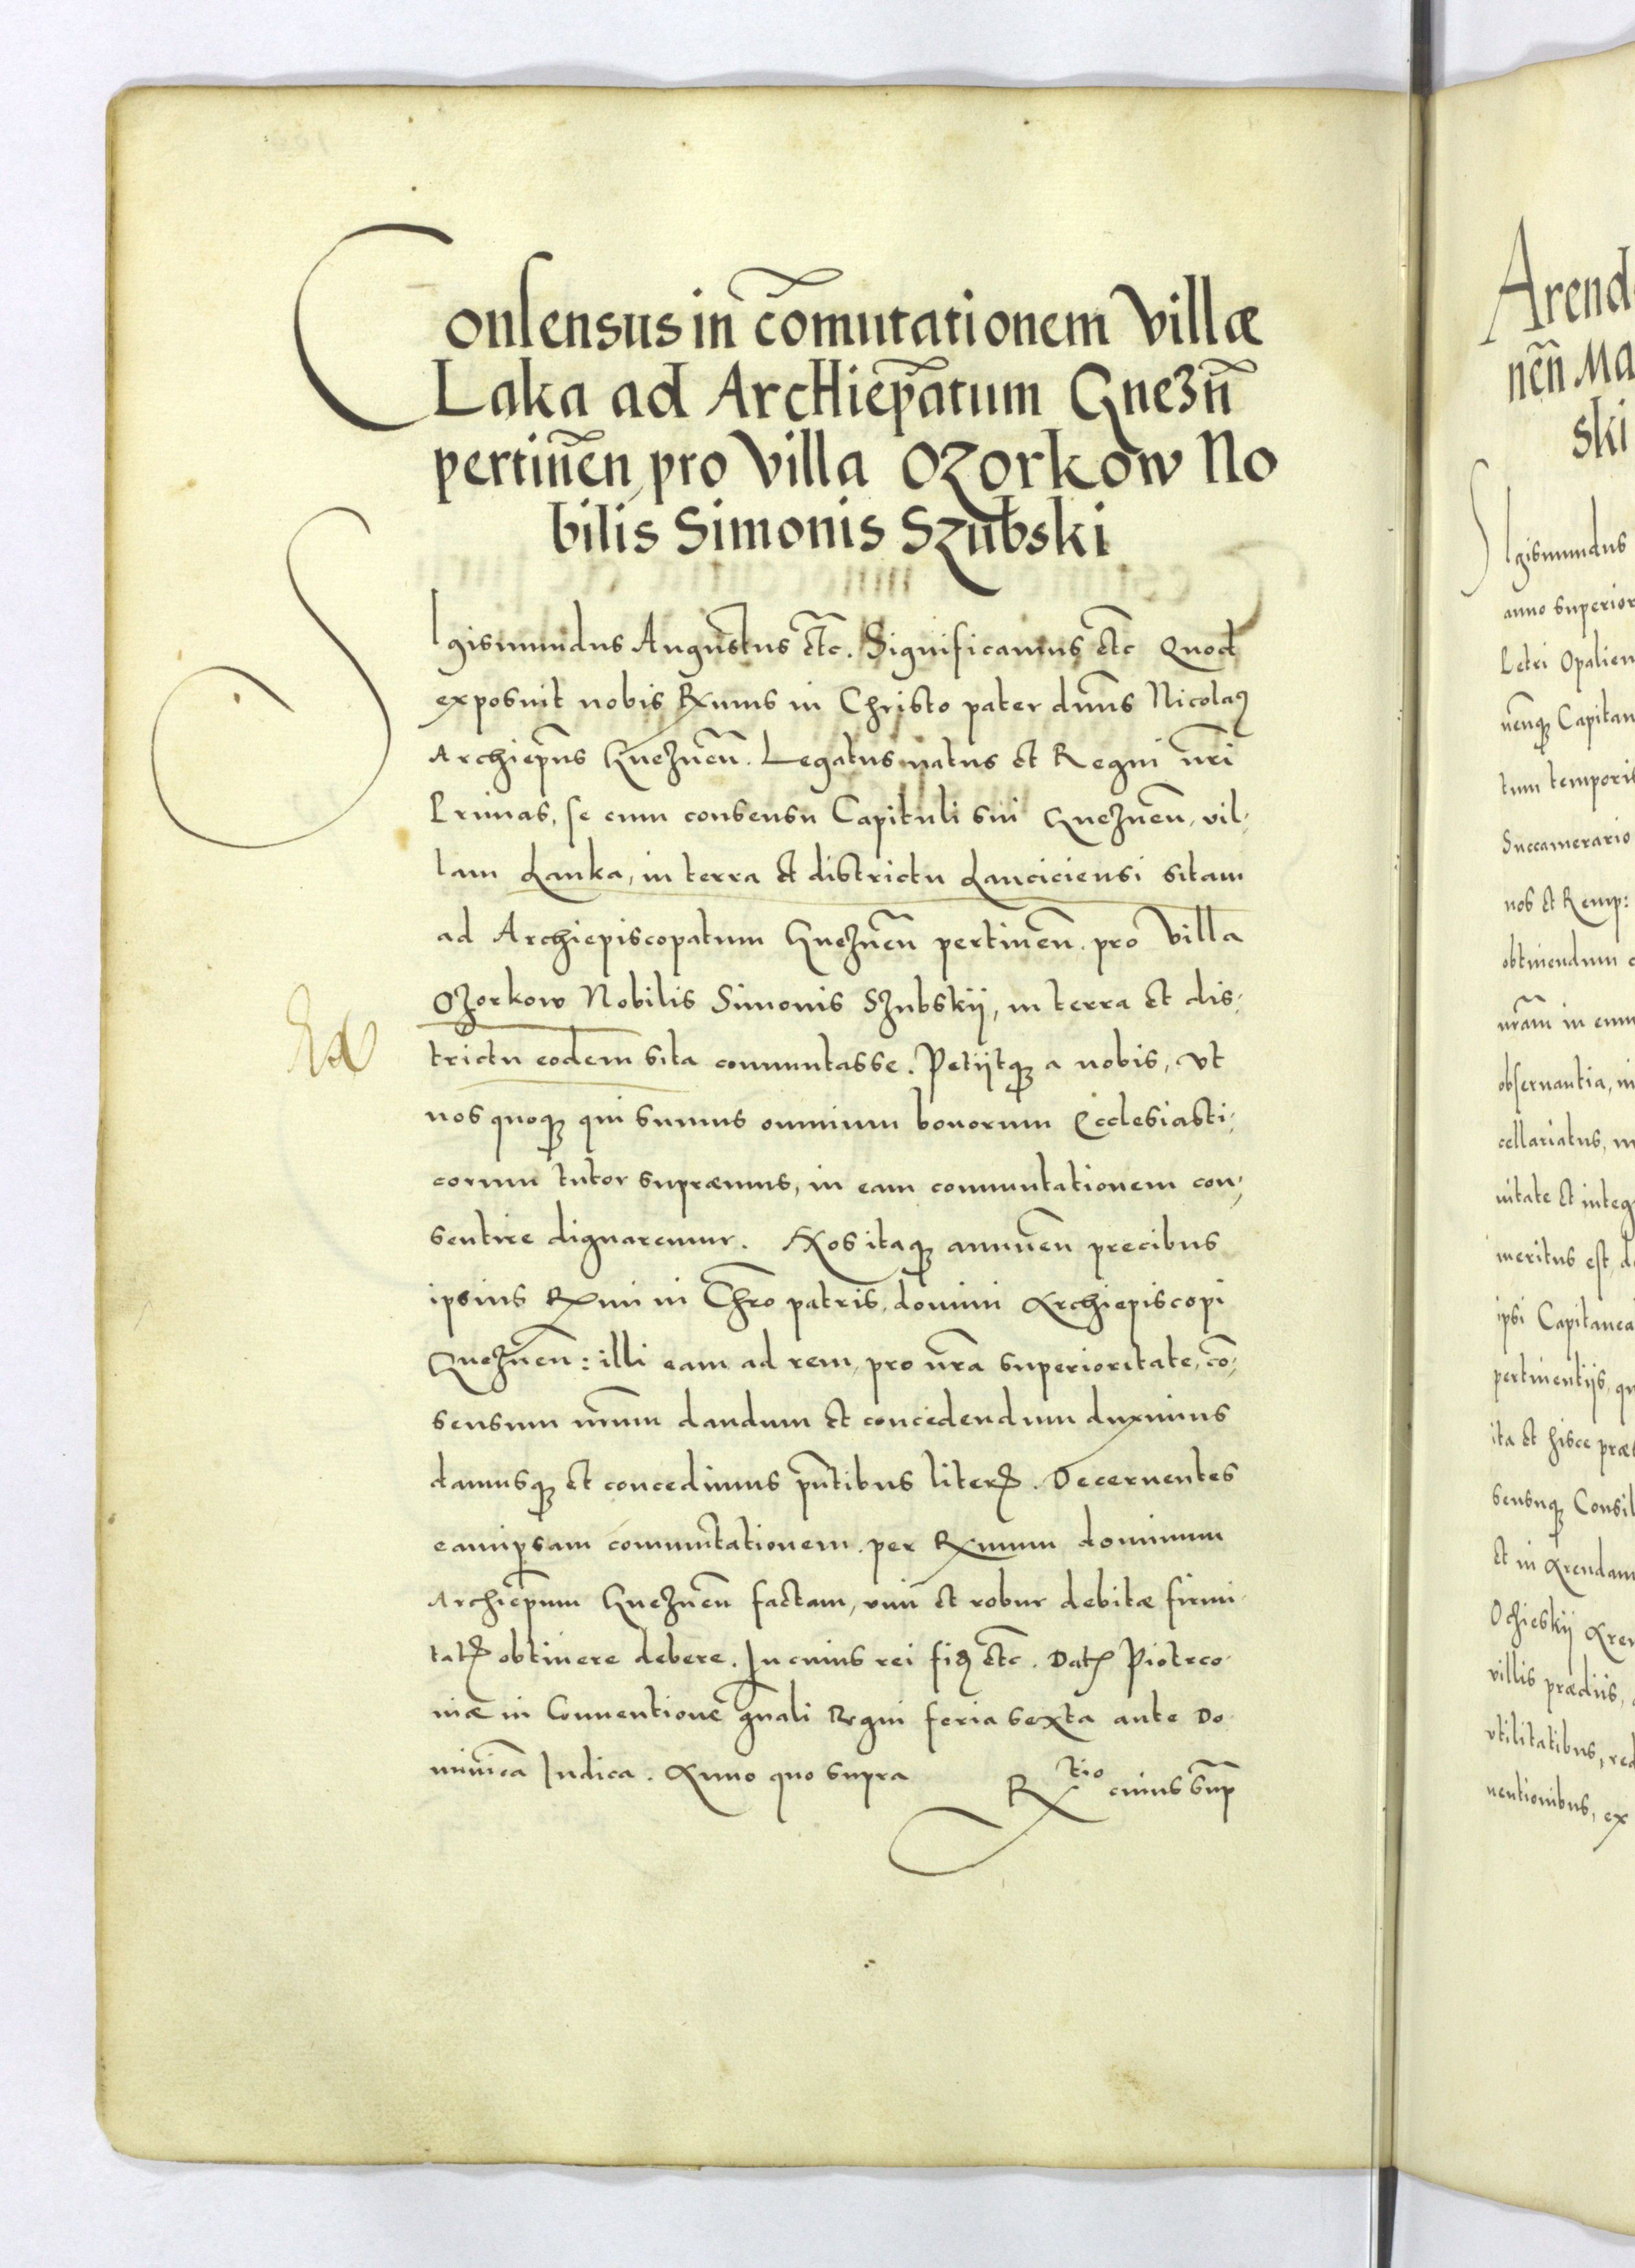 Consensus in com̃utationem Villæ
Laka ad Archiep̃atum Gnezn̄
pertineñ, pro Villa Ozorkow No
bilis Simonis Szubski
Sigismundus Augustus etc. Significamus etc Quod
exposuit nobis Rx̃mus in Christo pater dn̄us Nicolaꝰ
Archiep̄us Gnezneñ. Legatus natus et Regni nr̄i
Primas, se cum consensu Capituli sui Gnezneñ, vil-
lam Lanka, in terra et districtu Lanciciensi sitam
ad Archiepiscopatum Gnezneñ pertineñ. pro Villa
Ozorkow Nobilis Simonis Szubskij, in terra et dis-
trictu eodem sita commutasse. Petijtqꝫ a nobis, vt
nos quoqꝫ qui sumus omnium bonorum Ecclesiasti-
corum tutor supræmus, in eam commutationem con-
sentire dignaremur. Nos itaqꝫ annueñ precibus
ipsius Rx̃mi in Chr̄o patris, domini Archiepiscopi
Gnezneñ: illi eam ad rem, pro nr̄a superioritate, cō-
sensum nr̄um dandum et concedendum duximus
damusqꝫ et concedimus pn̄tibus literꝭ. Decernentes
eamipsam commutationem, per Rx̃mum dominum
Archiep̄um Gnezneñ factam, vim et robur debitæ firmi-
tatꝭ obtinere debere. In cuius rei fiꝫ etc. Datꝭ Piotrco-
uiæ in Conuentione gn̄ali Regni feria sexta ante Do-
minicā Iudica. Anno quo supra
R tio cuius sup̄
Arend
neñ Ma
ski
Sigismundus
anno superior
Petri Opalien
uenqꝫ Capitan
tum temporis
Succamerario
nos et Remp:
obtinendum
nr̄am in eum
obseruantia, in
cellariatus, m
uitate et integ
meritus est, d
ipsi Capitanea
pertinentijs, qu
ita et hisce præ
sensuqꝫ Consil
et in Arendam
Ochieskij Aren
villis prædiis,
vtilitatibus, red
uentionibus, ex